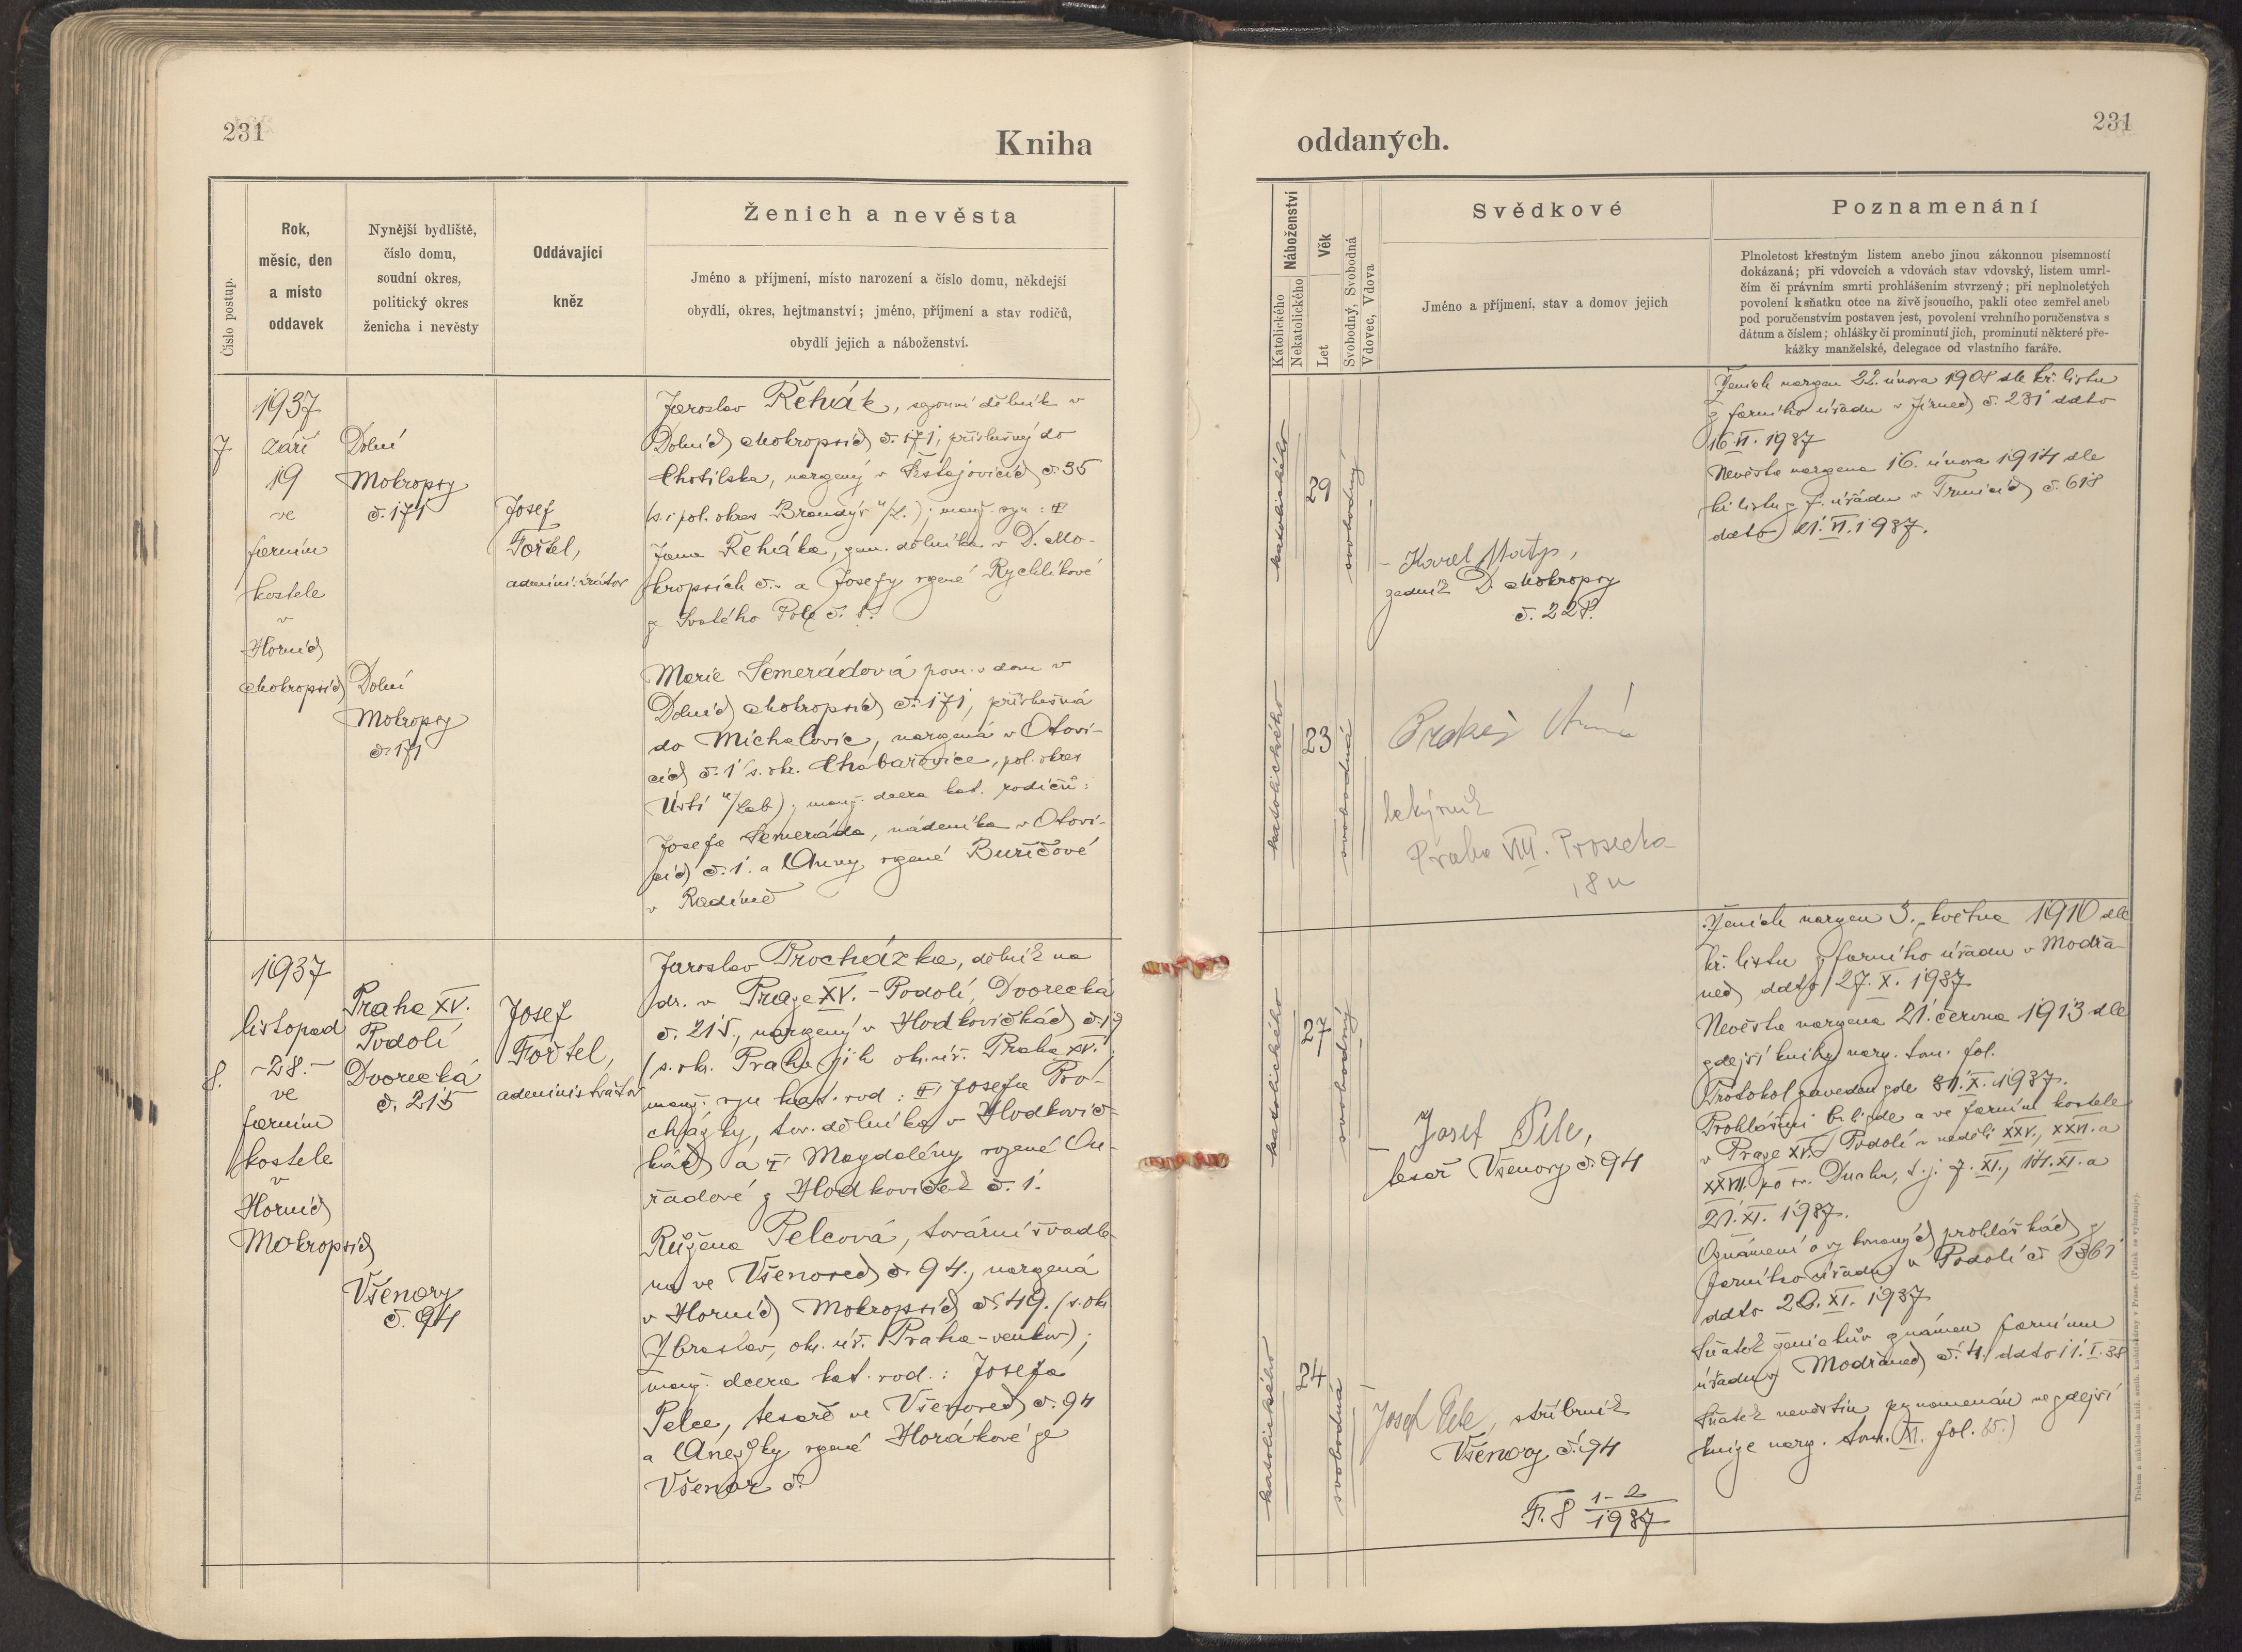 231
Kniha
oddaných.
231
Číslo postup.
Rok,
měsíc, den
a místo
oddavek
Nynější bydliště,
číslo domu,
soudní okres,
politický okres
ženicha i nevěsty
Oddávající
kněz
Ženich a nevěsta
Jméno a příjmení, místo narození a číslo domu, někdejší
obydlí, okres, hejtmanství; jméno, příjmení a stav rodičů,
obydlí jejich a náboženství.
Náboženství
Katolického
Nekatolického
Věk
Let
Svobodný, Svobodná
Vdovec, Vdova
Svědkové
Jméno a příjmení, stav a domov jejich
Poznamenání
Plnoletost křestným listem anebo jinou zákonnou písemností
dokázaná; při vdovcích a vdovách stav vdovský, listem umrl-
čím či právním smrti prohlášením stvrzený; při neplnoletých
povolení k sňatku otce na živě jsoucího, pakli otec zemřel aneb
pod poručenstvím postaven jest, povolení vrchního poručenstva s
dátum a číslem; ohlášky či prominutí jich, prominutí některé pře-
kážky manželské, delegace od vlastního faráře.
7.
1937
září
19
ve
farním
kostele
v
Horních
Mokropsích
Dolní
Mokropsy
č. 171
Dolní
Mokropsy
č. 171
Josef
Fořtel,
administrátor
Jaroslav Řehák, sezonní dělník v
Dolních Mokropsích č. 171, příslušný do
Chotilska, narozený v Šestajovicích č. 35
(s. i pol. okres Brandýs n/L.); manž. syn:
Jana Řeháka, zem. dělníka v D. Mo-
kropsích č. a Josefy rozené Rychlíkové
z Svatého Pole č.
Marie Semerádová pom. v dom v
Dolních Mokropsích č. 171, příslušná
do Michalovic, narozená v Otovi-
cích č. 1 (s. okr. Chabařovice, pol. okres
Ústí n/Lab); manž. dcera kat. rodičů:
Josefa Semeráda, nádeníka v Otovi-
cích č. 1. a Anny rozené Buričové
v Radíně
katolického
29
svobodný
Karel Matys,
zedník D. Mokropsy
č. 228.
katolického
23
svobodná
Praha VIII. Prosecká
Ženich narozen 22. února 1908 dle kř. listu
z farního úřadu v Jirnech č. 231 ddto
16. VI. 1937
Nevěsta narozena 16. února 1914 dle
kř. listu z f. úřadu v Trmicích č. 618
ddto 21. VI. 1937.
8.
1937
listopad
-28.-
ve
farním
kostele
v
Horních
Mokropsích
Praha XV.
Podolí
Dvorecká
č. 215
Všenory
č. 94
Josef
Fořtel,
administrátor
Jaroslav Procházka, dělník na
dr. v Praze XV. - Podolí, Dvorecká
č. 215, narozený v Hodkovičkách č. 19
(s. okr. Praha jih ok. úř. Praha XV.
manž. syn kat. rod: Josefa Pro-
cházky, tov. dělníka v Hodkovič-
kách a Magdalény rozené On-
řadové z Hodkoviček č. 1.
Růžena Pelcová, tovární švadle-
na ve Všenorech č. 94., narozená
v Horních Mokropsích č. 49. (s. ok.
Zbraslav, ok. úř. Praha-venkov);
manž. dcera kat. rod.: Josefa
Pelce, tesaře ve Všenorech č. 94
a Anežky rozené Horákové ze
Všenor č.
katolického
27
svobodný
Josef Pelc,
tesař Všenory č. 94
katolického
24
svobodná
Josef Pelc, stříbrník
Všenory č. 94
F. 8 1-2
1937
Ženich narozen 3. května 1910 dle
kř. listu z farního úřadu v Modřa-
nech ddto 27. X. 1937
Nevěsta narozena 21. června 1913 dle
zdejší knihy naroz. tom. fol.
Protokol zaveden zde 31. X. 1937.
Prohlášeni byli zde a ve farním kostele
v Praze XV. Podolí v neděli XXV., XXVI. a
XXVII. po sv. Duchu, t. j. 7. XI., 14. XI. a
21. XI. 1937.
Oznámení o vykonaných prohláškách z
farního úřadu v Podolí č. 1361
ddto 26. XI. 1937
Sňatek ženichův oznámen farnímu
úřadu v Modřanech č. 4. ddto 11. I. 38
Sňatek nevěstin poznamenán ve zdejší
knize naroz. tom. XI. fol. 85.)